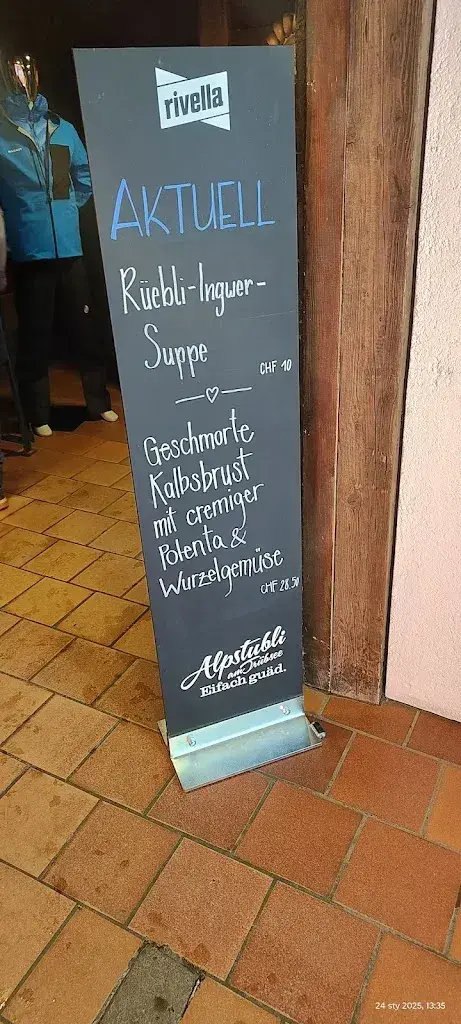 rivella
AKTUELL
Rüebli-Ingwer-
Suppe
CHF 10
Geschmorte
Kalbsbrust
mit cremiger
Polenta &
Wurzelgemüse
CHF 28.50
Alpstubli
am Trübsee
Eifach guäd.
24 sty 2025, 13:35